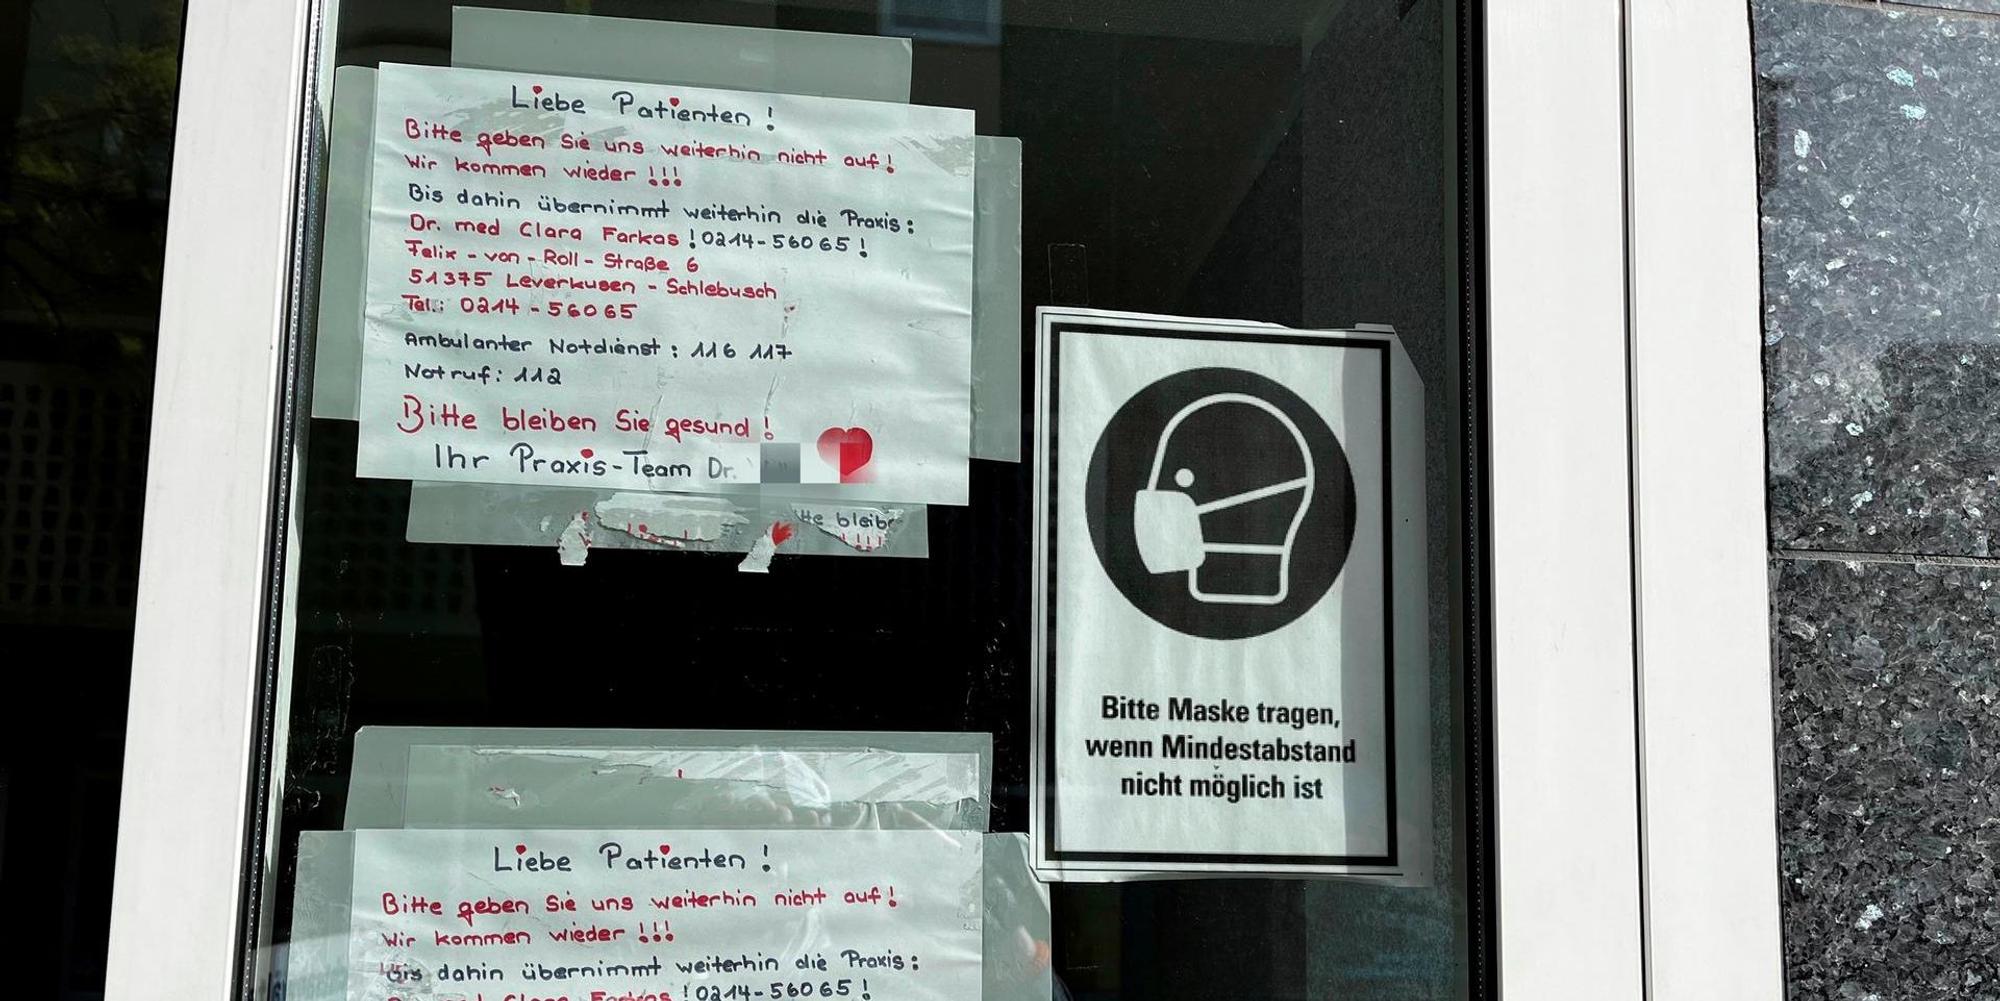 Liebe Patienten !
Bitte geben Sie uns weiterhin nicht auf!
Wir kommen wieder !!!
Bis dahin übernimmt weiterhin die Praxis:
Dr. med Clara Farkas ! 0214-56065 !
Felix-von-Roll-Straße 6
51375 Leverkusen - Schlebusch
Tel.: 0214-56065
Ambulanter Notdienst: 116 117
Notruf: 112
Bitte bleiben Sie gesund !
Ihr Praxis-Team Dr.
Bitte Maske tragen,
wenn Mindestabstand
nicht möglich ist
Liebe Patienten !
Bitte geben Sie uns weiterhin nicht auf!
Wir kommen wieder !!!
Bis dahin übernimmt weiterhin die Praxis:
Clara Farkas ! 0214-56065 !